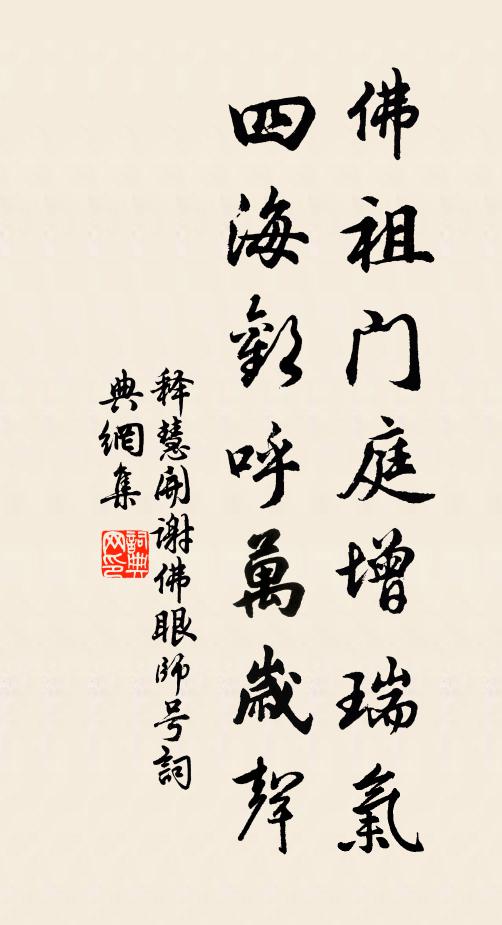 佛祖門庭增瑞氣
四海歡呼萬歲聲
释慧開谢佛眼師号詞
典網集
詞典
网印